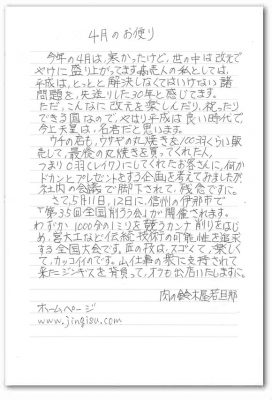 4月のお便り
今年の4月は、寒かったけど、世の中は改元で
やけに盛り上がってます。商売人の私としては、
平成は、とっとと解決しなくてはいけない諸
問題を、先送りした30年と感じてます。
ただ、こんなに改元を楽しんだり、祝ったり
できる国なので、やはり平成は良い時代で、
今上天皇は、名君だと思います。
ウチの店も、ウサヤの丸焼きを100羽くらい販
売して、最後の丸焼きを買ってくれた人、
つまり0羽(レイワ)にしてくれたお客さんに、何か
ドカンとプレゼントをする企画を考えてみましたが、
社内の会議で却下されて、残念ですに。
さて、5月11日、12日に、信州の伊那市で
「第35回全国削ろう会」が開催されます。
わずか、1000分の1ミリを競うカンナ削りをはじ
め、宮大工など伝統技術の可能性を追求
する全国大会です。匠の技は、スゴくて、楽しく
て、カッコイイのです。山仕事の糧に支持されて
来たジンギスを背負って、オラも出店いたしますに。
肉の鈴木屋若旦那
ホームページ
www.jingisu.com